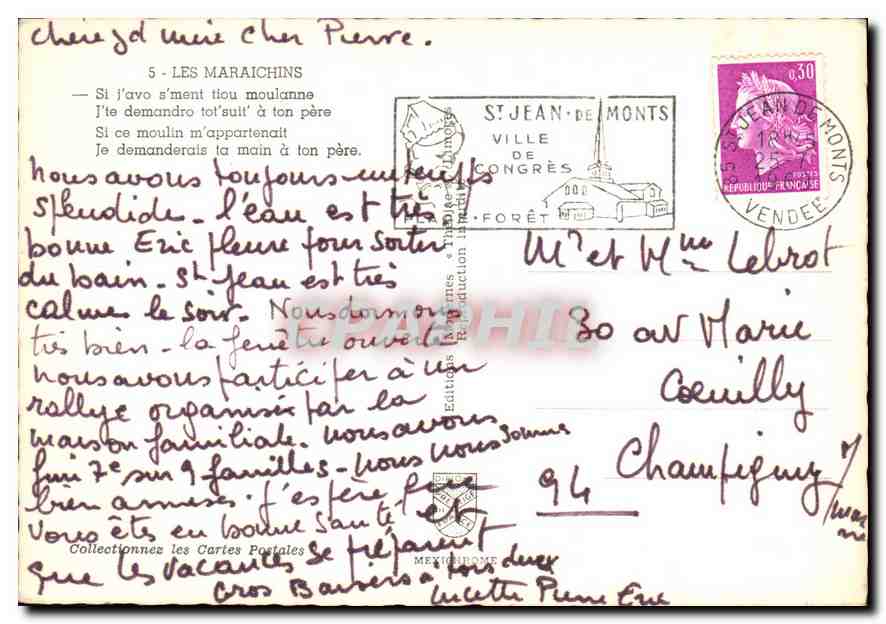 chère gd mère cher Pierre.
5 - LES MARAICHINS
— Si j'avo s'ment tiou moulanne
J'te demandro tot'suit' à ton père
Si ce moulin m'appartenait
Je demanderais ta main à ton père.
nous avons toujours un temps
splendide - l'eau est très
bonne Eric pleure pour sortir
du bain - St Jean est très
calme le soir. Nous dormons
très bien - la fenêtre ouverte
nous avons participer à un
rallye organisé par la
maison familiale. nous avons
fini 7e sur 9 familles - nous nous sommes
bien amusés. j'espère que
vous êtes en bonne santé et
que les vacances se préparent
Gros Baisers à tous deux
Lucette Pierre Eric
Collectionnez les Cartes Postales
Editions Modernes « Théojac » Limoges
Reproduction interdite
MEXICHROME
EPAPHIL
ST JEAN-DE MONTS
VILLE
DE
CONGRÈS
FORÊT
0,30
POSTES
REPUBLIQUE FRANÇAISE
85 ST JEAN DE MONTS
18H
25-7
VENDEE
Mr et Mme Lebrot
30 av Marie
Cœuilly
Champigny s/
marne
94